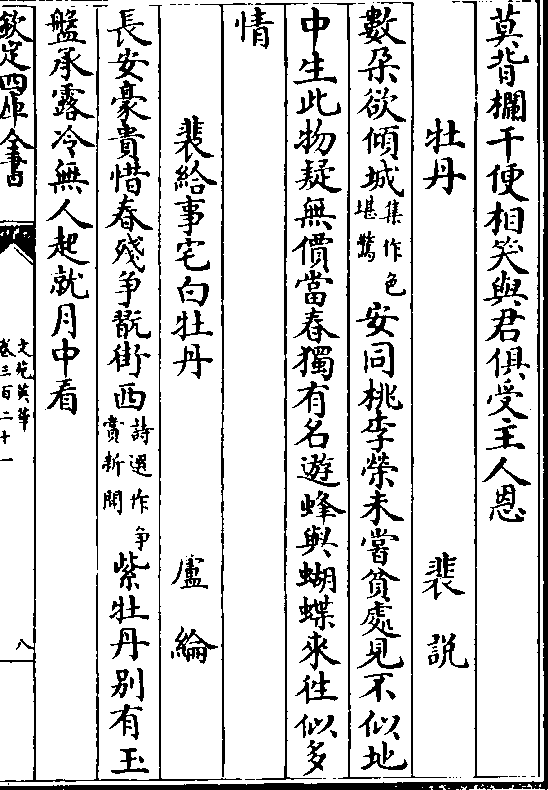 莫背欄干便相笑與君俱受主人恩
牡丹 裴説
數朶欲傾城集作色堪驚安同桃李榮未嘗貧處見不似地
中生此物疑無價當春獨有名遊蜂與蝴蝶來徃似多
情
裴給事宅白牡丹 盧綸
長安豪貴惜春殘争翫街西詩選作争賞新開紫牡丹别有玉
盤承露冷無人起就月中看
欽定四庫全書
文苑英華
卷三百二十一
八